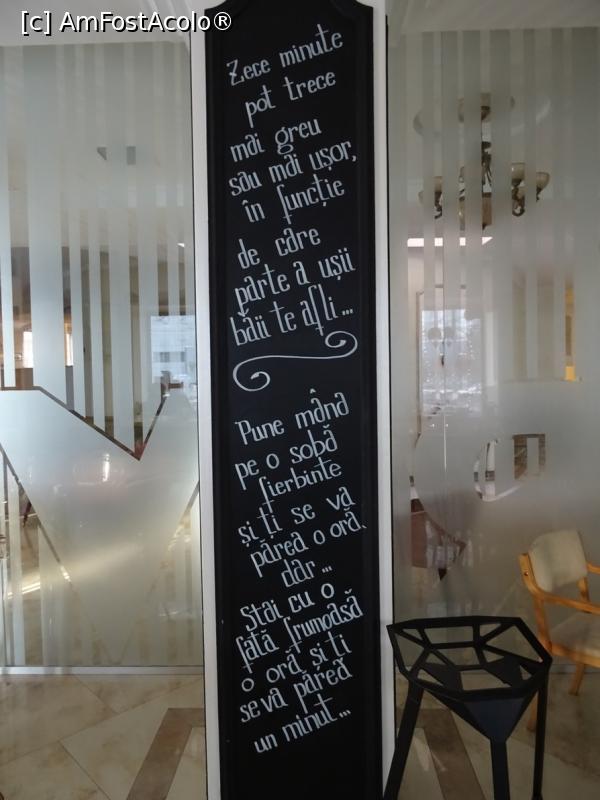 [c] AmFostAcolo®
Zece minute
pot trece
mai greu
sau mai ușor,
în funcție
de care
parte a ușii
băii te afli...
Pune mâna
pe o sobă
fierbinte
și ți se va
părea o oră,
dar...
Stai cu o
fată frumoasă
o oră și ți
se va părea
un minut...